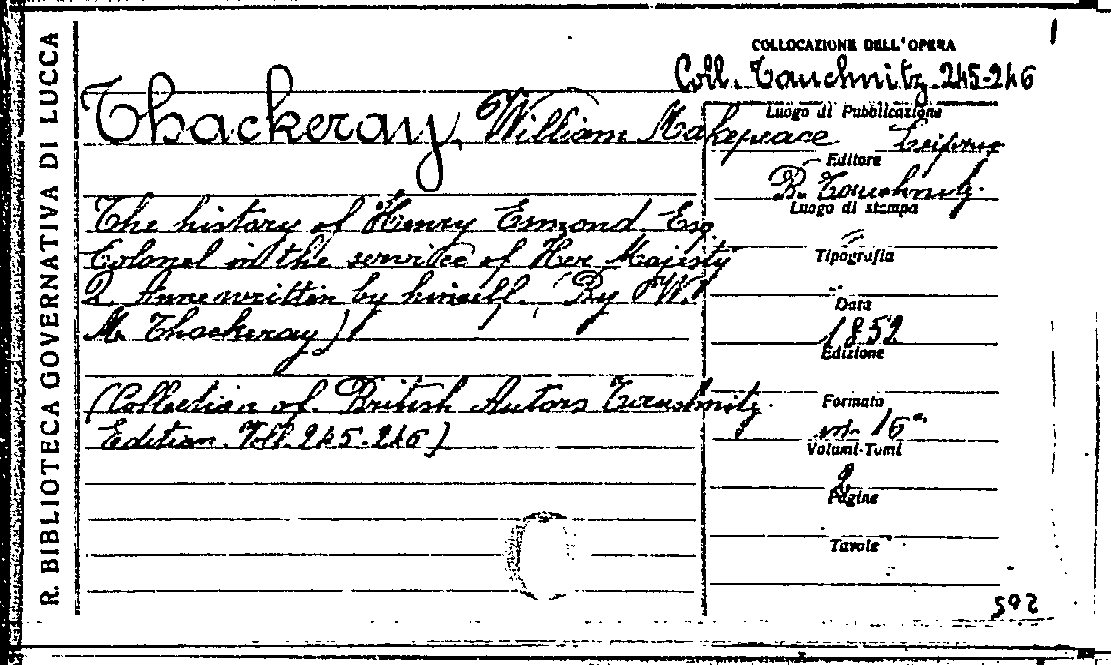 R. BIBLIOTECA GOVERNATIVA DI LUCCA
COLLOCAZIONE DELL'OPERA
Coll. Tauchnitz 245-246
Thackeray, William Makepeace
The history of Henry Esmond, Esq
Colonel in the service of Her Majesty
Q. Anne written by himself. (By W.
M. Thackeray)
(Collection of British Autors Tauchnitz
Edition. Voll. 245-246)
Luogo di Pubblicazione
Leipzig
Editore
B. Tauchnitz.
Luogo di stampa
Tipografia
Data
1852
Edizione
Formato
in 16°
Volumi-Tomi
2
Pagine
Tavole
592